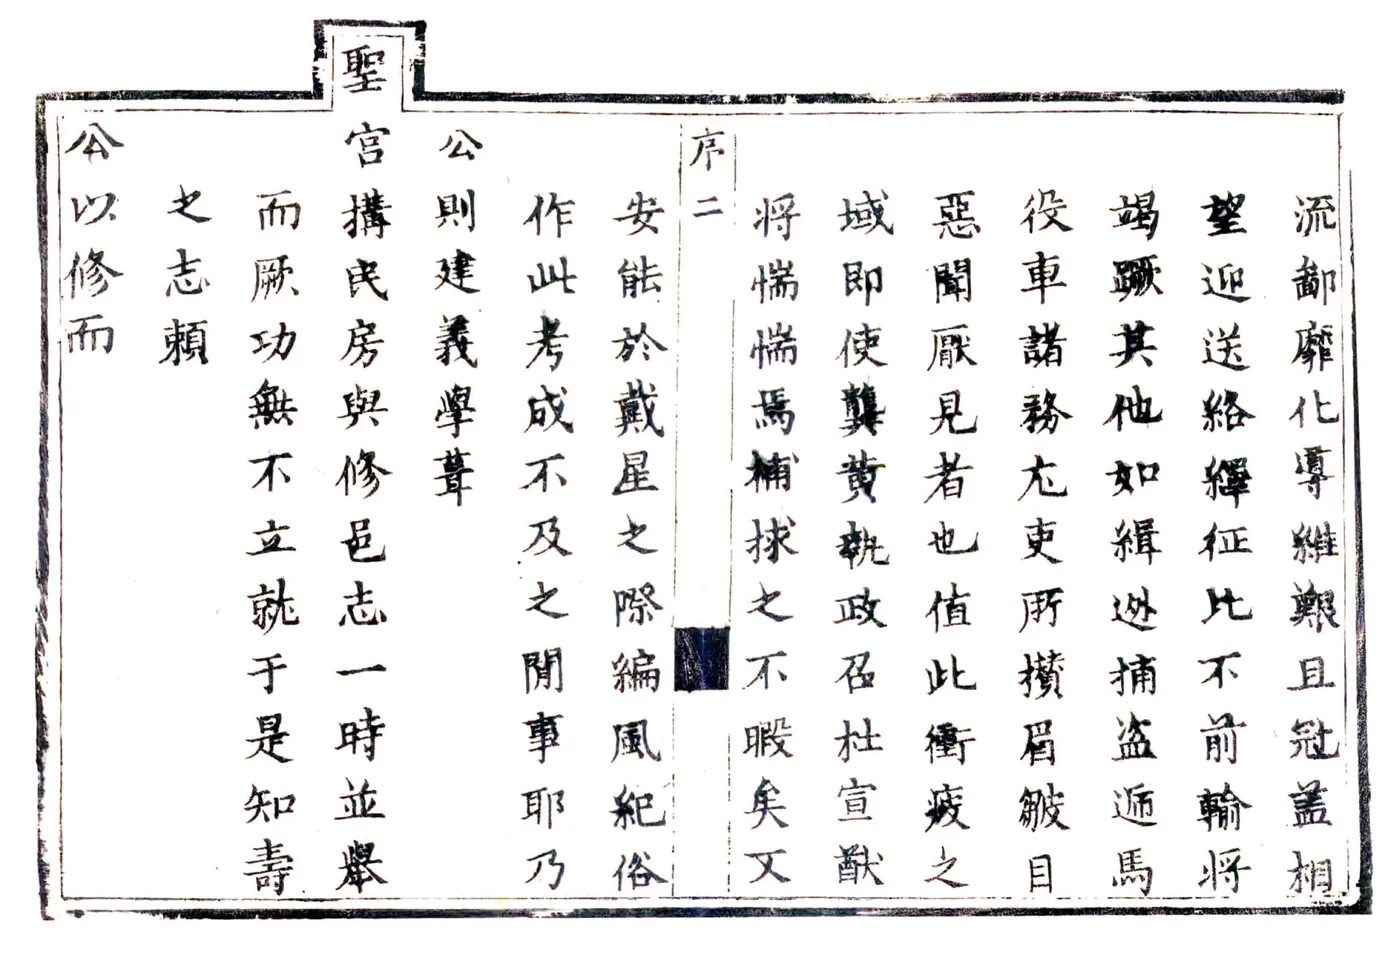 流鄙靡化導維艱且冠蓋相
望迎送絡繹征比不前輸將
竭蹶其他如緝逃捕盜遞馬
役車諸務尤吏所攢眉皺目
惡聞厭見者也值此衝疲之
域即使龔黄執政召杜宣猷
將惴惴焉補捄之不暇矣又
序二
安能於戴星之際編風紀俗
作此考成不及之閒事耶乃
公則建義學葺
聖宮搆民房與修邑志一時並舉
而厥功無不立就于是知壽
之志賴
公以修而